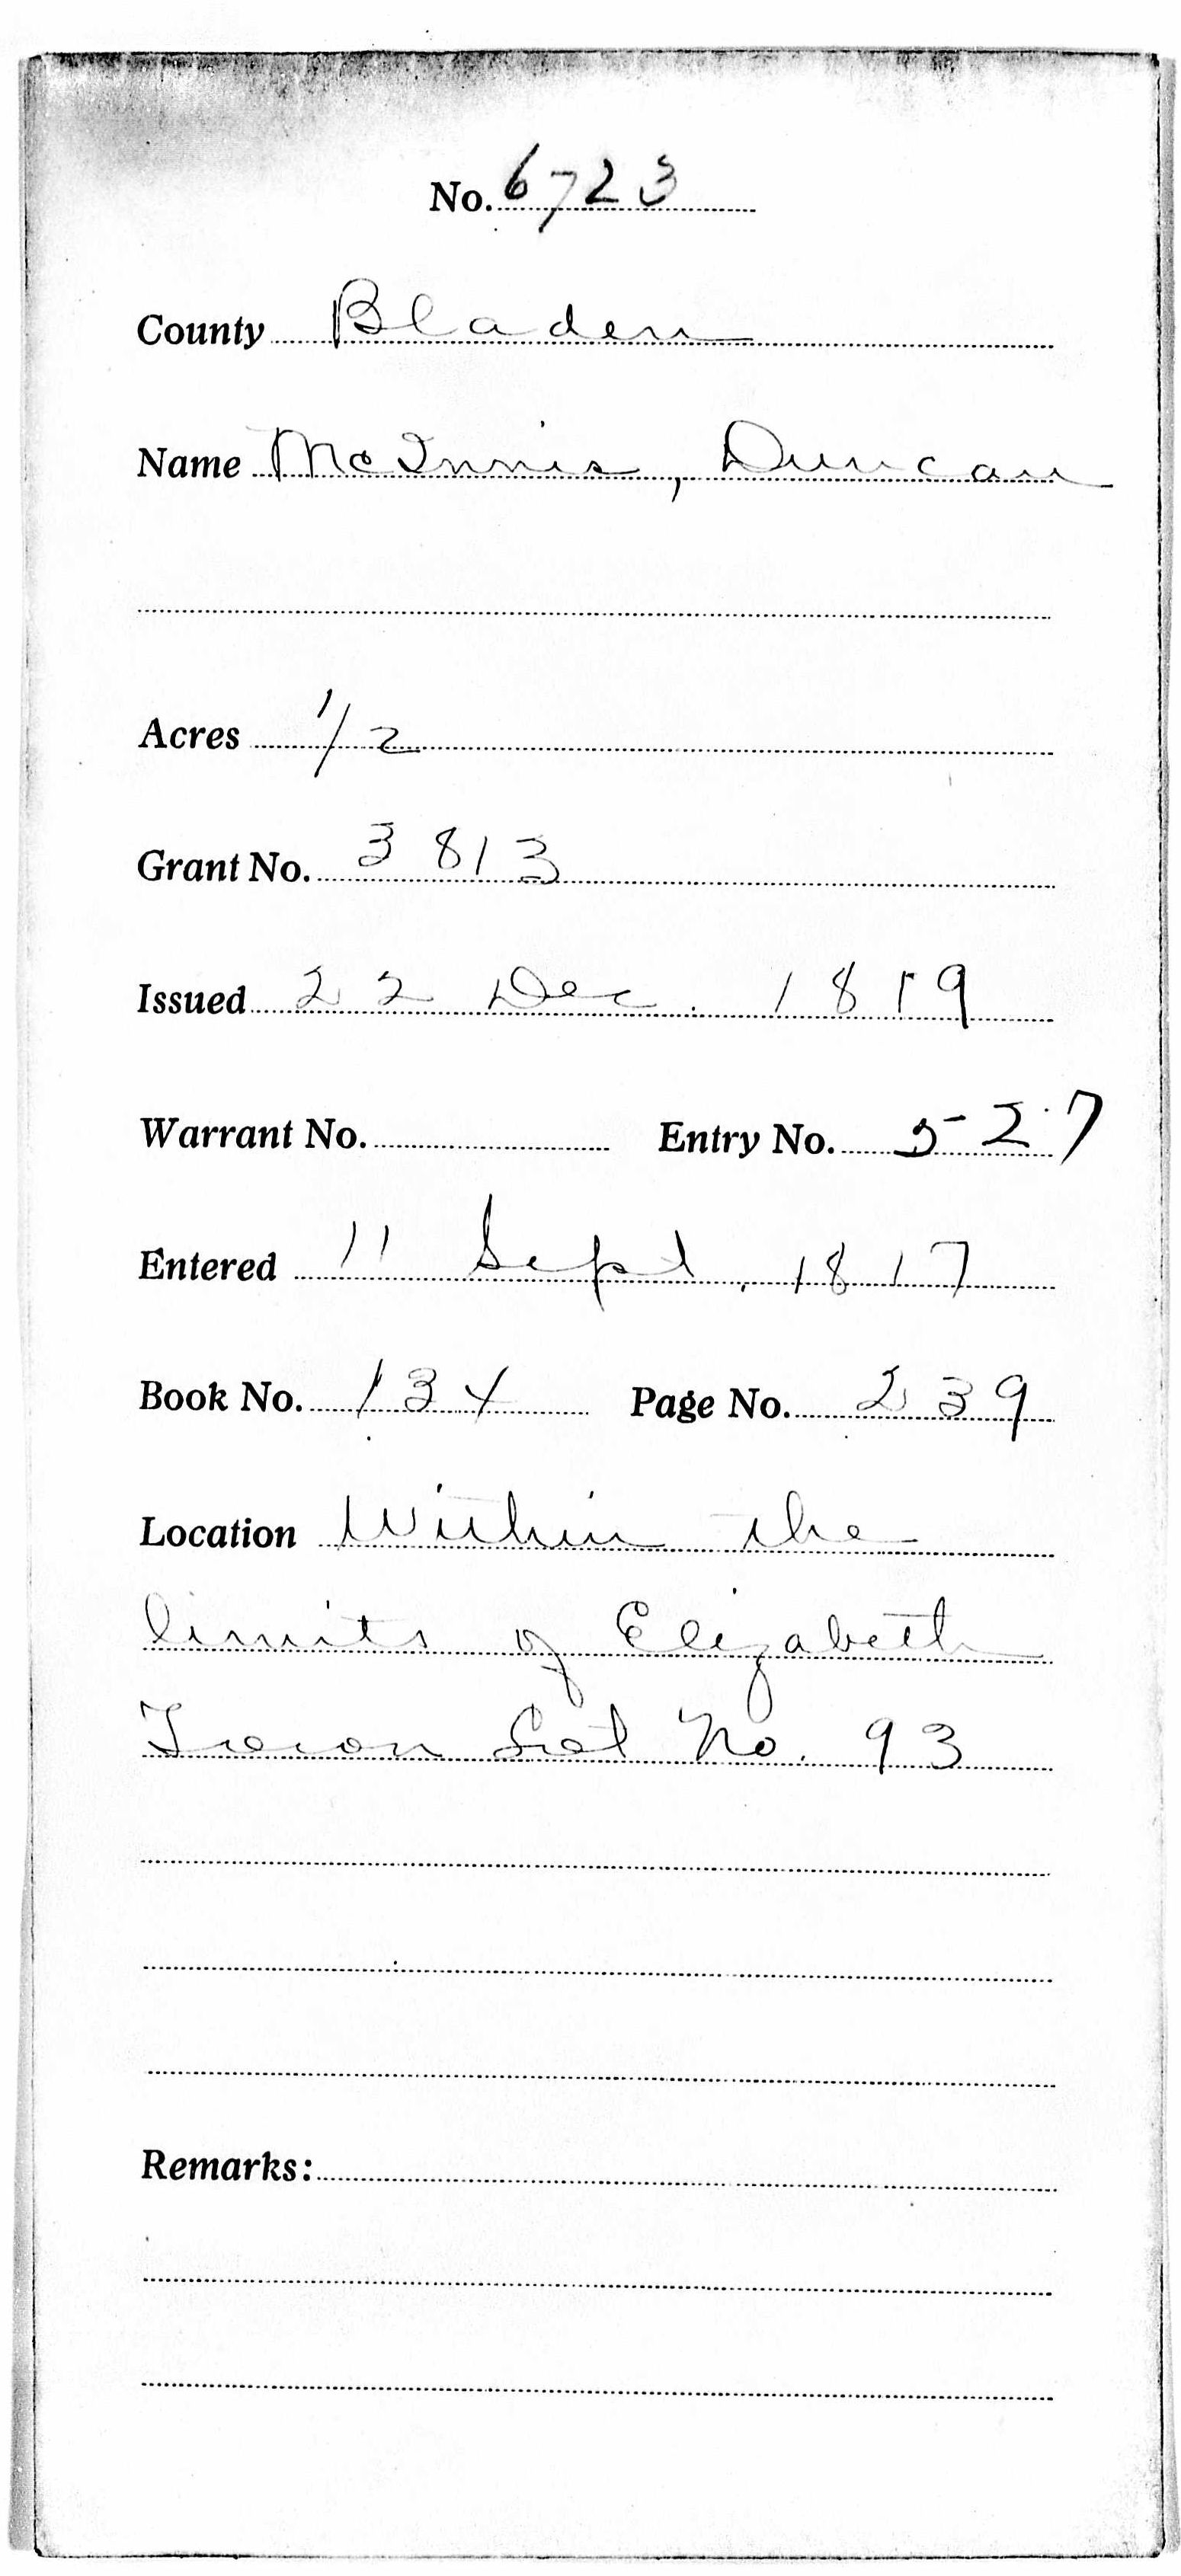 No. 6723
County Bladen
Name McInnis, Duncan
Acres 1/2
Grant No. 3813
Issued 22 Dec. 1819
Warrant No. Entry No. 527
Entered 11 Sept, 1817
Book No. 134 Page No. 239
Location Within the
limits of Elizabeth
Town Lot No. 93
Remarks: